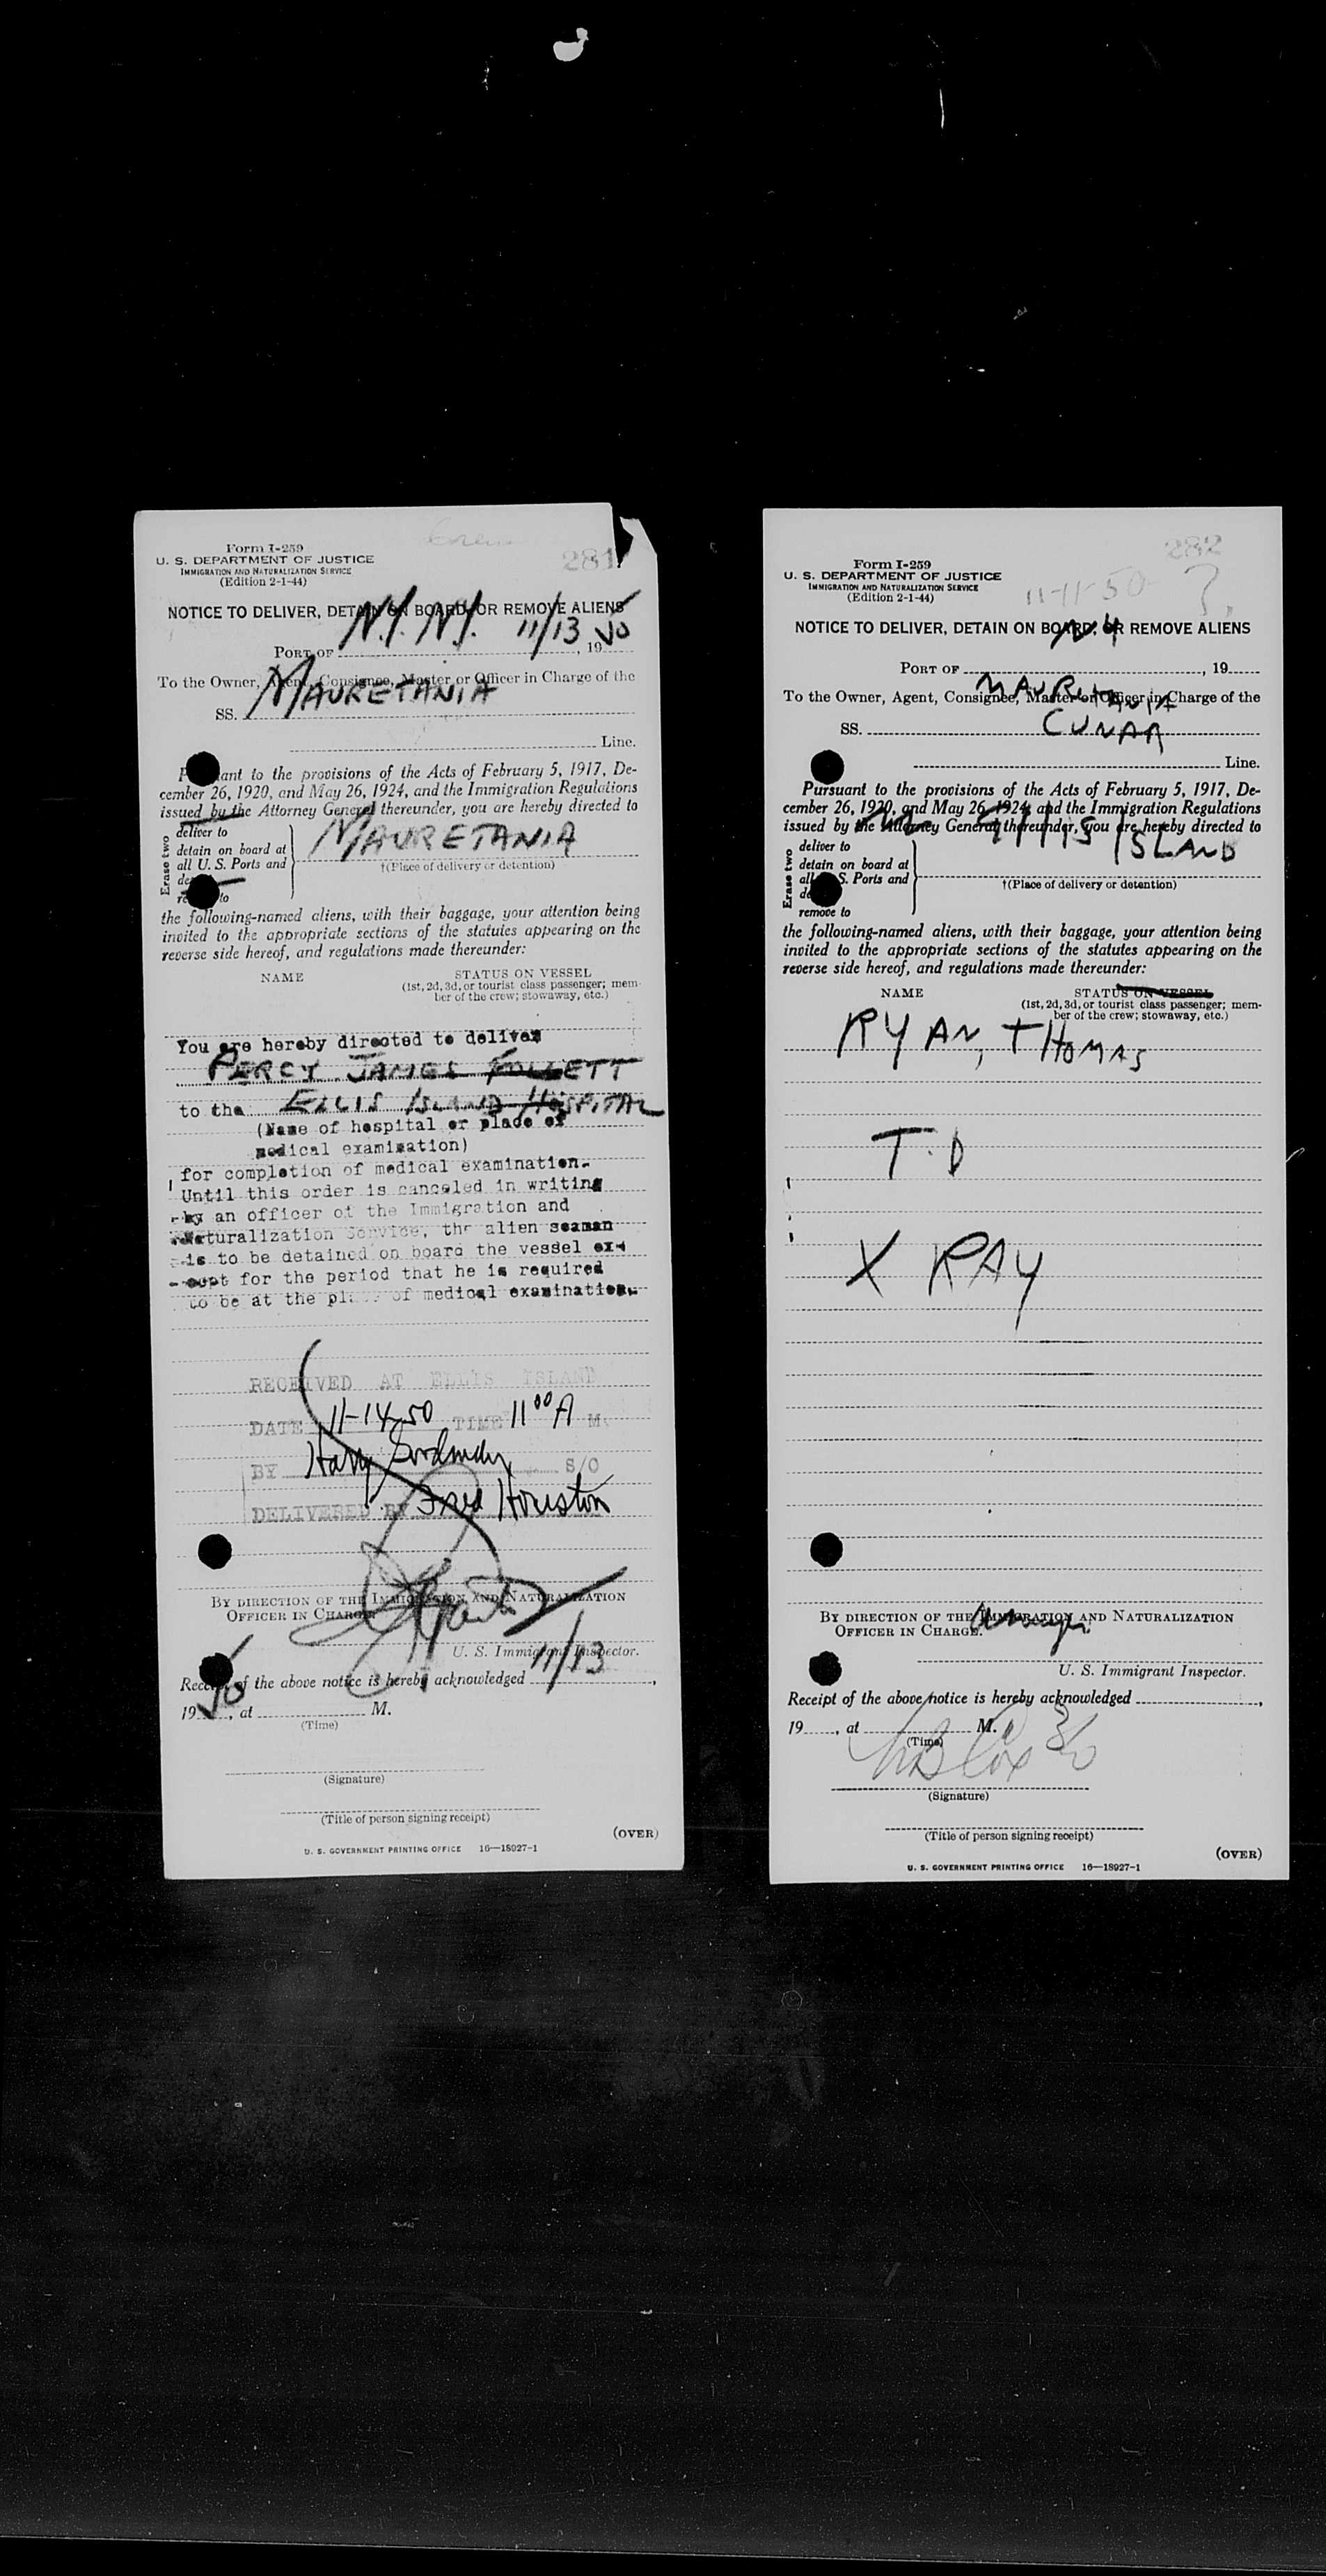 Form I-259
U. S. DEPARTMENT OF JUSTICE
IMMIGRATION AND NATURALIZATION SERVICE
(Edition 2-1-44)
281
NOTICE TO DELIVER, DETAIN ON BOARD, OR REMOVE ALIENS
N.Y. N.Y. 11/13 50
PORT OF , 19
To the Owner, Agent, Consignee, Master or Officer in Charge of the
SS. MAURETANIA
Line.
Pursuant to the provisions of the Acts of February 5, 1917, De-
cember 26, 1920, and May 26, 1924, and the Immigration Regulations
issued by the Attorney General thereunder, you are hereby directed to
Erase two
deliver to
detain on board at
all U. S. Ports and
remove to
MAURETANIA
†(Place of delivery or detention)
the following-named aliens, with their baggage, your attention being
invited to the appropriate sections of the statutes appearing on the
reverse side hereof, and regulations made thereunder:
NAME STATUS ON VESSEL
(1st, 2d, 3d, or tourist class passenger; mem-
ber of the crew; stowaway, etc.)
You are hereby directed to deliver
PERCY JAMES FOLLETT
to the ELLIS ISLAND HOSPITAL
(Name of hospital or place of
medical examination)
for completion of medical examination.
Until this order is canceled in writing
by an officer of the Immigration and
Naturalization Service, the alien seaman
is to be detained on board the vessel ex-
cept for the period that he is required
to be at the place of medical examination.
RECEIVED AT ELLIS ISLAND
DATE 11-14-50 TIME 11 00 A M.
BY Harry S/O
DELIVERED BY Fred Houston
BY DIRECTION OF THE IMMIGRATION AND NATURALIZATION
OFFICER IN CHARGE.
U. S. Immigrant Inspector.
Receipt of the above notice is hereby acknowledged 11/13,
19 50, at M.
(Time)
(Signature)
(Title of person signing receipt)
(OVER)
U. S. GOVERNMENT PRINTING OFFICE 16—18927-1
282
Form I-259
U. S. DEPARTMENT OF JUSTICE
IMMIGRATION AND NATURALIZATION SERVICE
(Edition 2-1-44)
11-11-50 ?
NOTICE TO DELIVER, DETAIN ON BOARD, OR REMOVE ALIENS
NY
PORT OF , 19
To the Owner, Agent, Consignee, Master or Officer in Charge of the
MAURETANIA
SS. CUNAR
Line.
Pursuant to the provisions of the Acts of February 5, 1917, De-
cember 26, 1920, and May 26, 1924, and the Immigration Regulations
issued by the Attorney General thereunder, you are hereby directed to
Erase two
deliver to
detain on board at
all U. S. Ports and
remove to
ISLAND
†(Place of delivery or detention)
the following-named aliens, with their baggage, your attention being
invited to the appropriate sections of the statutes appearing on the
reverse side hereof, and regulations made thereunder:
NAME STATUS ON VESSEL
(1st, 2d, 3d, or tourist class passenger; mem-
ber of the crew; stowaway, etc.)
RYAN, THOMAS
T.D
X RAY
BY DIRECTION OF THE IMMIGRATION AND NATURALIZATION
OFFICER IN CHARGE.
U. S. Immigrant Inspector.
Receipt of the above notice is hereby acknowledged ,
19 , at M.
(Time)
(Signature)
(Title of person signing receipt)
(OVER)
U. S. GOVERNMENT PRINTING OFFICE 16—18927-1